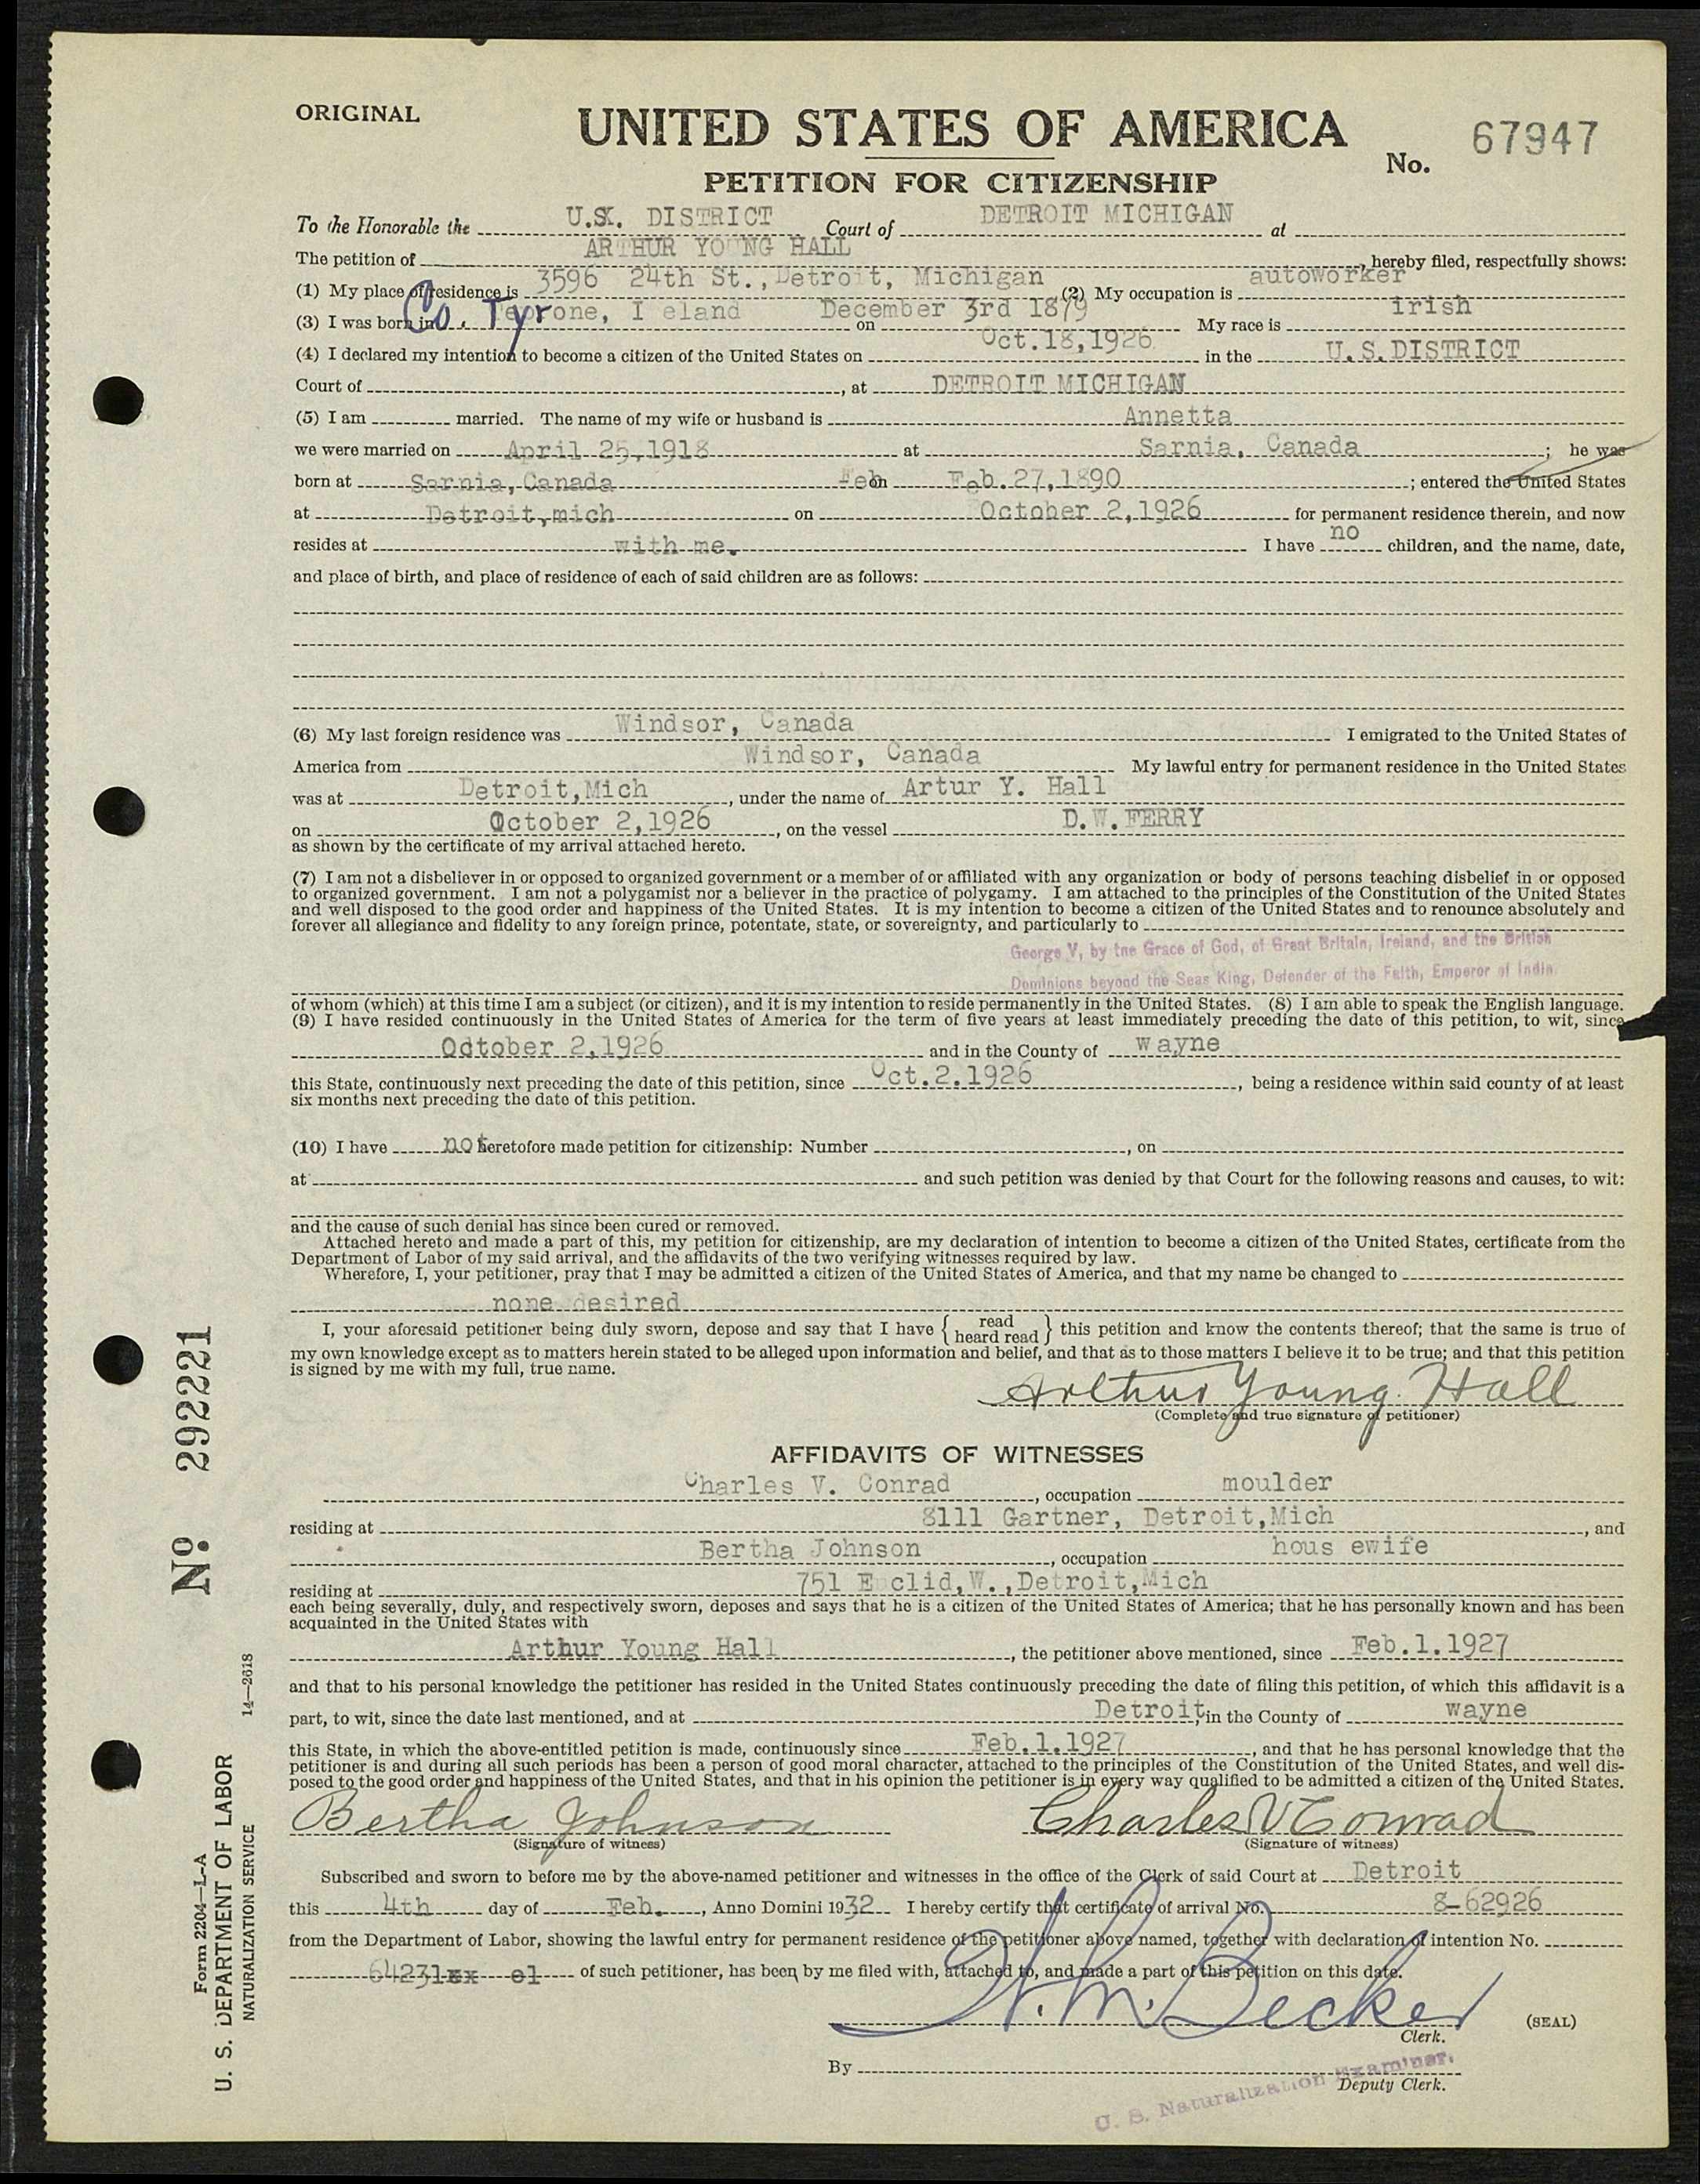 ORIGINAL
UNITED STATES OF AMERICA
No. 67947
PETITION FOR CITIZENSHIP
To the Honorable the U.S. DISTRICT Court of DETROIT MICHIGAN at
The petition of ARTHUR YOUNG HALL, hereby filed, respectfully shows:
(1) My place of residence is 3596 24th St., Detroit, Michigan (2) My occupation is autoworker
(3) I was born in Co. Tyrone, I eland on December 3rd 1879 My race is irish
(4) I declared my intention to become a citizen of the United States on Oct.18,1926 in the U.S.DISTRICT
Court of , at DETROIT MICHIGAN
(5) I am married. The name of my wife or husband is Annetta
we were married on April 25,1918 at Sarnia, Canada ; he was
born at Sarnia,Canada Feb on Feb.27,1890 ; entered the United States
at Detroit,mich on October 2,1926 for permanent residence therein, and now
resides at with me. I have no children, and the name, date,
and place of birth, and place of residence of each of said children are as follows:
(6) My last foreign residence was Windsor, Canada I emigrated to the United States of
America from Windsor, Canada My lawful entry for permanent residence in the United States
was at Detroit,Mich, under the name of Artur Y. Hall
on October 2,1926, on the vessel D.W.FERRY
as shown by the certificate of my arrival attached hereto.
(7) I am not a disbeliever in or opposed to organized government or a member of or affiliated with any organization or body of persons teaching disbelief in or opposed
to organized government. I am not a polygamist nor a believer in the practice of polygamy. I am attached to the principles of the Constitution of the United States
and well disposed to the good order and happiness of the United States. It is my intention to become a citizen of the United States and to renounce absolutely and
forever all allegiance and fidelity to any foreign prince, potentate, state, or sovereignty, and particularly to
George V, by the Grace of God, of Great Britain, Ireland, and the British
Dominions beyond the Seas King, Defender of the Faith, Emperor of India.
of whom (which) at this time I am a subject (or citizen), and it is my intention to reside permanently in the United States. (8) I am able to speak the English language.
(9) I have resided continuously in the United States of America for the term of five years at least immediately preceding the date of this petition, to wit, since
October 2,1926 and in the County of wayne
this State, continuously next preceding the date of this petition, since Oct.2.1926, being a residence within said county of at least
six months next preceding the date of this petition.
(10) I have not heretofore made petition for citizenship: Number , on
at and such petition was denied by that Court for the following reasons and causes, to wit:
and the cause of such denial has since been cured or removed.
Attached hereto and made a part of this, my petition for citizenship, are my declaration of intention to become a citizen of the United States, certificate from the
Department of Labor of my said arrival, and the affidavits of the two verifying witnesses required by law.
Wherefore, I, your petitioner, pray that I may be admitted a citizen of the United States of America, and that my name be changed to
none desired
I, your aforesaid petitioner being duly sworn, depose and say that I have { read
heard read } this petition and know the contents thereof; that the same is true of
my own knowledge except as to matters herein stated to be alleged upon information and belief, and that as to those matters I believe it to be true; and that this petition
is signed by me with my full, true name.
Arthur Young Hall
(Complete and true signature of petitioner)
AFFIDAVITS OF WITNESSES
Charles V. Conrad, occupation moulder
residing at 8111 Gartner, Detroit,Mich, and
Bertha Johnson, occupation hous ewife
residing at 751 E clid,W.,Detroit,Mich
each being severally, duly, and respectively sworn, deposes and says that he is a citizen of the United States of America; that he has personally known and has been
acquainted in the United States with
Arthur Young Hall, the petitioner above mentioned, since Feb.1.1927
and that to his personal knowledge the petitioner has resided in the United States continuously preceding the date of filing this petition, of which this affidavit is a
part, to wit, since the date last mentioned, and at Detroit, in the County of wayne
this State, in which the above-entitled petition is made, continuously since Feb.1.1927, and that he has personal knowledge that the
petitioner is and during all such periods has been a person of good moral character, attached to the principles of the Constitution of the United States, and well dis-
posed to the good order and happiness of the United States, and that in his opinion the petitioner is in every way qualified to be admitted a citizen of the United States.
Bertha Johnson Charles V Conrad
(Signature of witness) (Signature of witness)
Subscribed and sworn to before me by the above-named petitioner and witnesses in the office of the Clerk of said Court at Detroit
this 4th day of Feb., Anno Domini 1932 I hereby certify that certificate of arrival No. 8-62926
from the Department of Labor, showing the lawful entry for permanent residence of the petitioner above named, together with declaration of intention No.
64231 of such petitioner, has been by me filed with, attached to, and made a part of this petition on this date.
H. M. Becker
Clerk.
(SEAL)
By
Deputy Clerk.
U. S. Naturalization Examiner.
No. 292221
Form 2204—L-A
U. S. DEPARTMENT OF LABOR
NATURALIZATION SERVICE
14—2618